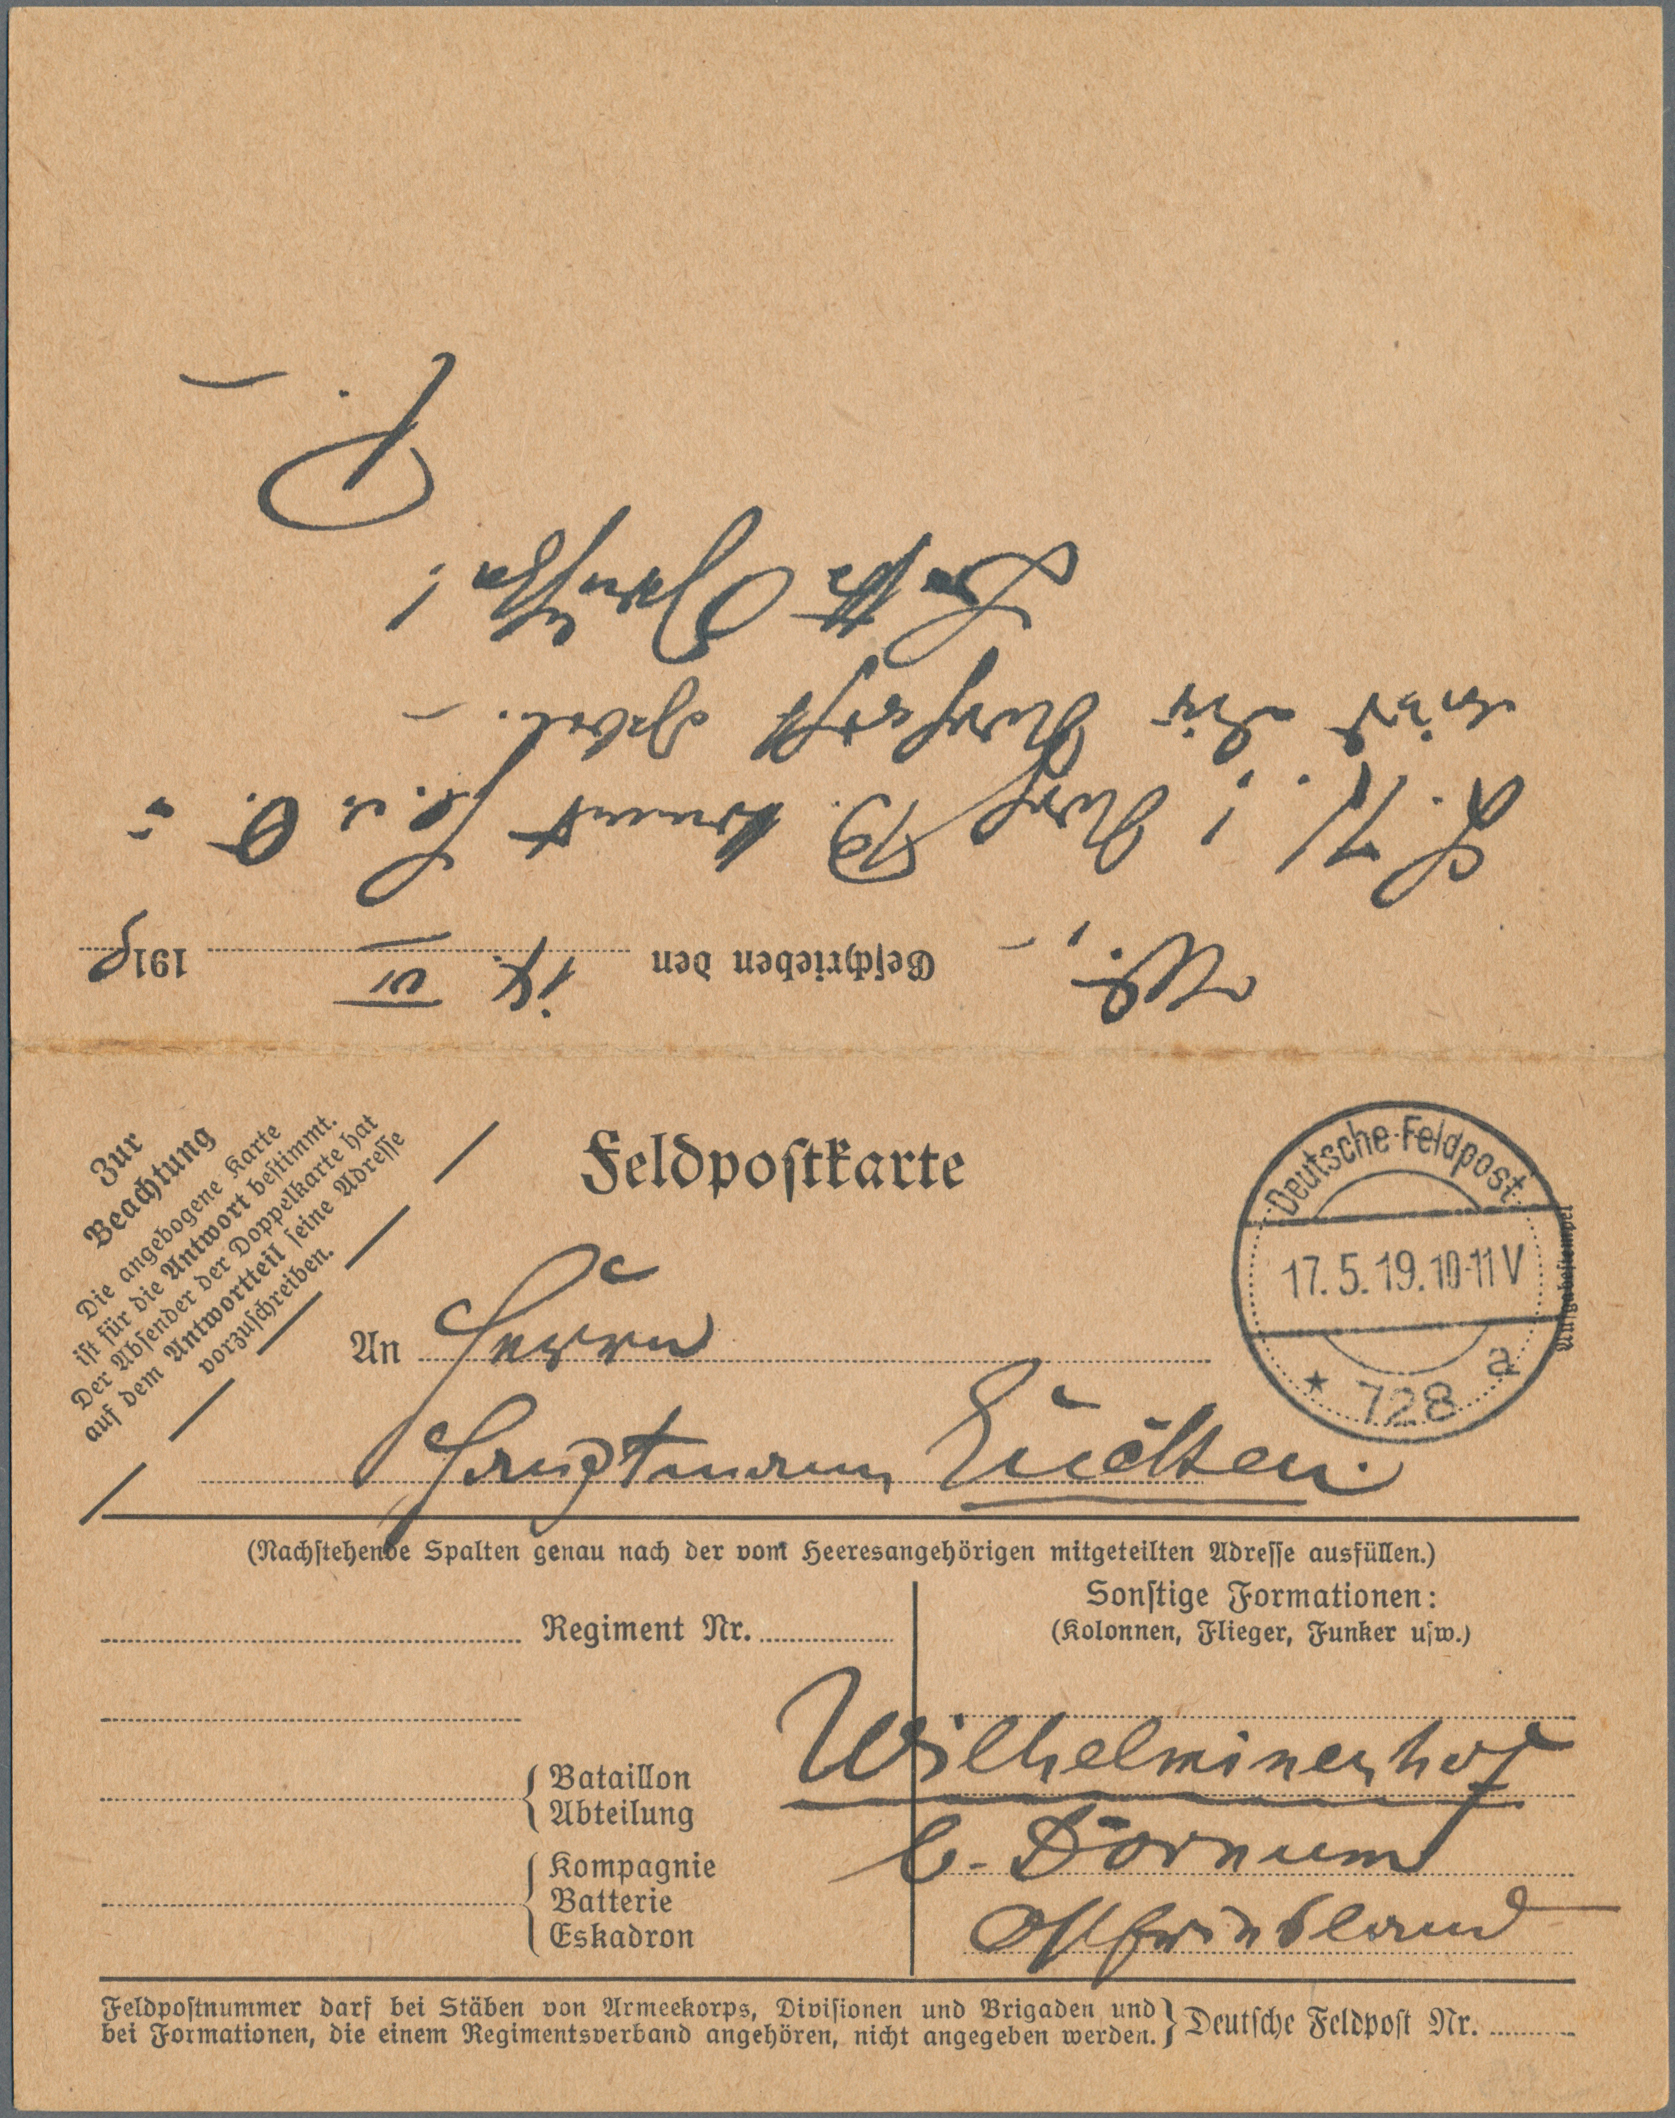 Geschrieben den 14. VI 1919
L. K.! Nach B. kommt
wird die
Beste Grüße!
Zur
Beachtung
Die angebogene Karte
ist für die Antwort bestimmt.
Der Absender der Doppelkarte hat
auf dem Antwortteil seine Adresse
vorzuschreiben.
Feldpostkarte
Deutsche Feldpost
17.5.19.10-11V
* 728 a
Aufgabestempel
An Herrn
Hauptmann
(Nachstehende Spalten genau nach der vom Heeresangehörigen mitgeteilten Adresse ausfüllen.)
Regiment Nr.
Bataillon
Abteilung
Kompagnie
Batterie
Eskadron
Sonstige Formationen:
(Kolonnen, Flieger, Funker usw.)
Wilhelminenhof
b. Dornum
Ostfriesland
Feldpostnummer darf bei Stäben von Armeekorps, Divisionen und Brigaden und
bei Formationen, die einem Regimentsverband angehören, nicht angegeben werden.
Deutsche Feldpost Nr.